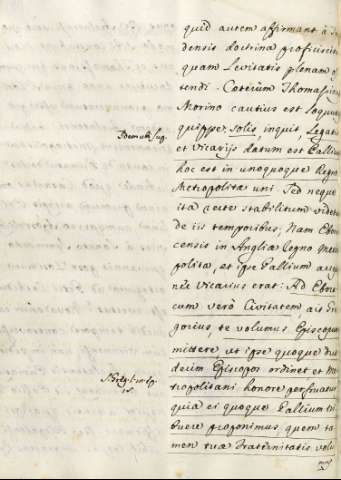 quid autem affirmant à
densis doctrina proficisci
quam Levitatis plenam
tendi. Coeterum Thomassin
Morino cautius est
quippe, solis, inquit, Legat
et Vicarijs datum est Pallium
hoc est in unoquoque Regno
Metropolitæ uni. Sed neque
ita certe stabilitum vide
de iis temporibus, Nam Ebor
censis in Anglia Regno Met
politæ, et ipse Pallium
nec Vicarius erat: Ad Ebor
cum verò Civitatem, ait Gre
gorius, te volumus Episcopum
mittere ut ipse quoque duo
decim Episcopos ordinet et Me
tropolitani honore perfruatur
quia ei quoque Pallium tri
buere proponimus, quem ta
men tuæ Fraternitatis volu